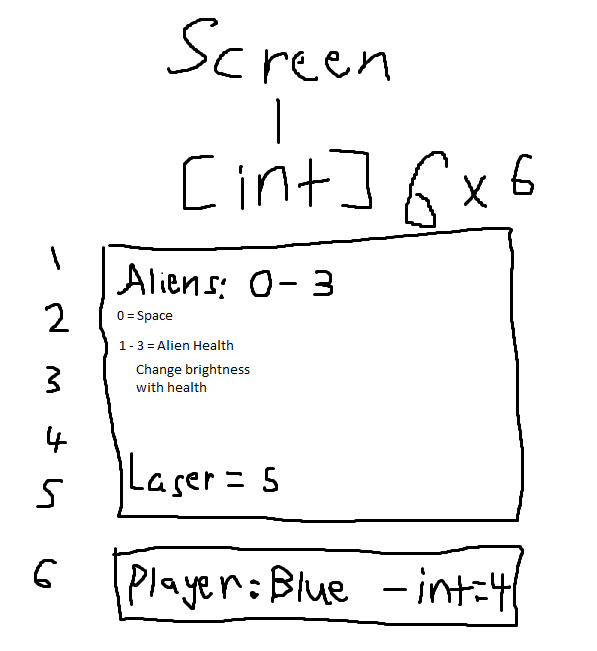 Screen
[int] 6 x 6
1
Aliens: 0 - 3
2
0 = Space
1 - 3 = Alien Health
3
Change brightness
with health
4
5
Laser = 5
6
Player: Blue - int=4